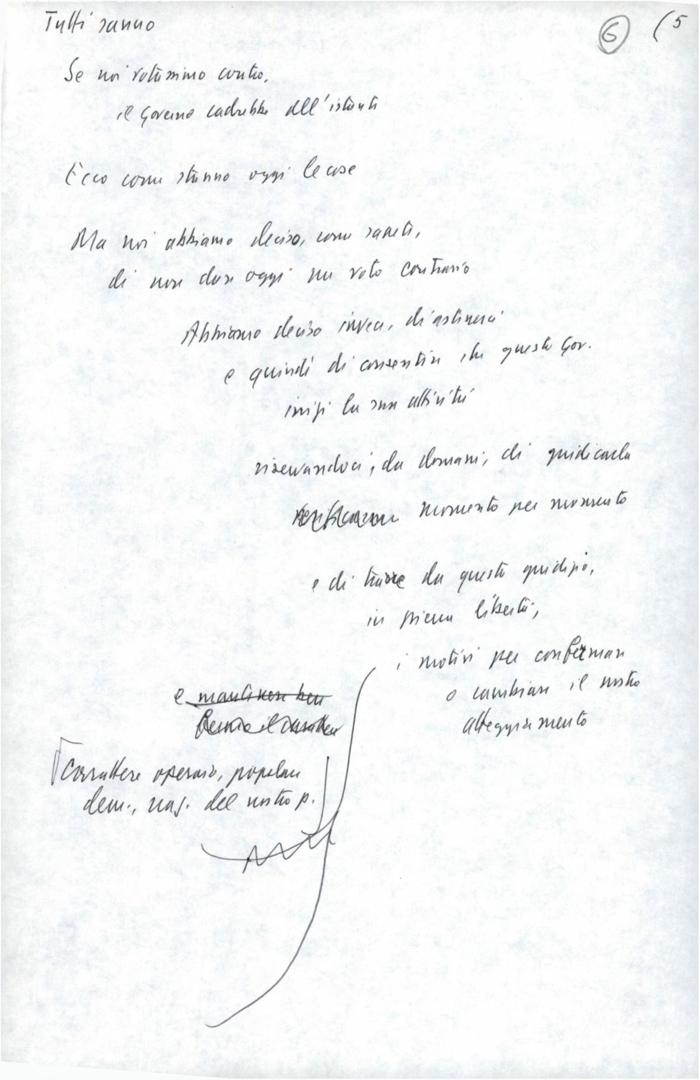 Tutti sanno
6 (5
Se noi votassimo contro,
il Governo cadrebbe all'istante
Ecco come stanno oggi le cose
Ma noi abbiamo deciso, come sapete,
di non dare oggi un voto contrario
Abbiamo deciso invece, di astenerci
e quindi di consentire che questo Gov.
inizi la sua attività
riservandoci, da domani, di giudicarla
momento per momento
e di trarre da questo giudizio,
in piena libertà,
i motivi per confermare
o cambiare il nostro
atteggiamento
e mantenere ben
fermo il carattere
Carattere operaio, popolare
dem., naz. del nostro p.